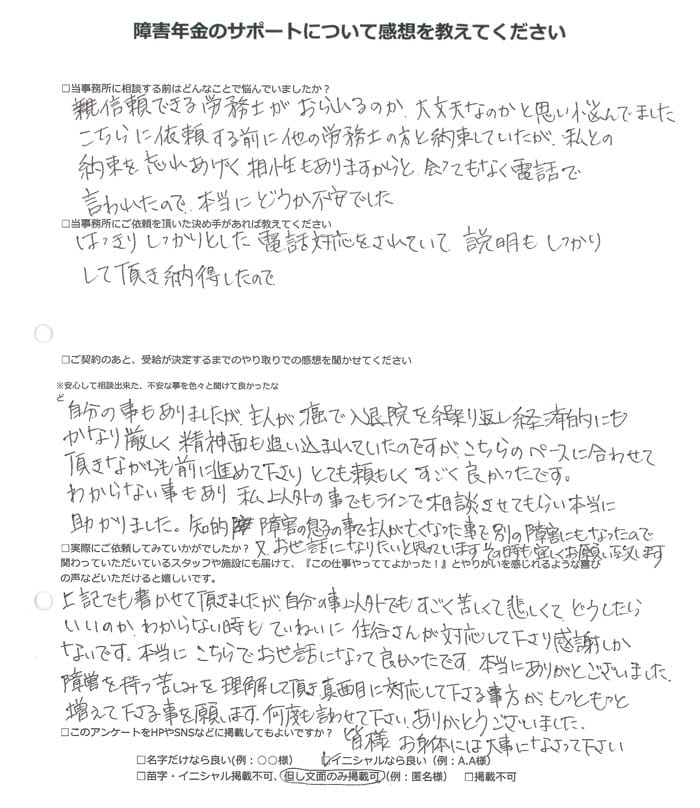 障害年金のサポートについて感想を教えてください
□当事務所に相談する前はどんなことで悩んでいましたか？
親信頼できる労務士がおられるのか、大丈夫なのかと思い悩んでました
こちらに依頼する前に他の労務士の方と約束していたが、私との
約束を忘れあげく相性もありますからと、会ってもなく電話で
言われたので、本当にどうか不安でした
□当事務所にご依頼を頂いた決め手があれば教えてください
はっきりしっかりとした電話対応をされていて 説明もしっかり
して頂き納得したので
□ご契約のあと、受給が決定するまでのやり取りでの感想を聞かせてください
※安心して相談出来た、不安な事を色々と聞けて良かったな
ど
自分の事もありましたが、主人が癌で入退院を繰り返し経済的にも
かなり厳しく精神面も追い込まれていたのですが、こちらのペースに合わせて
頂きながらも前に進めて下さり とても頼もしく すごく良かったです。
わからない事もあり 私以外の事でもラインで相談させてもらい本当に
助かりました。知的障害の息子の事で主人が亡くなった事で別の障害にもなったので
□実際にご依頼してみていかがでしたか？ 又お世話になりたいと思っています その時も宜しくお願い致します
関わっていただいているスタッフや施設にも届けて、『この仕事やっててよかった！』とやりがいを感じれるような喜び
の声などいただけると嬉しいです。
上記でも書かせて頂きましたが、自分の事以外でも すごく苦しくて悲しくて どうしたら
いいのか、わからない時も ていねいに 住谷さんが対応して下さり感謝しか
ないです。本当に こちらでお世話になって良かったです。本当にありがとございました。
障害を持つ苦しみを理解して頂き真面目に対応して下さる事方が、もっともっと
増えて下さる事を願います。何度も言わせて下さい、ありがとうございました。
□このアンケートをHPやSNSなどに掲載してもよいですか？ 皆様 お身体には大事になさって下さい
□名字だけなら良い（例：○○様） □イニシャルなら良い（例：A.A様）
□苗字・イニシャル掲載不可、但し文面のみ掲載可（例：匿名様） □掲載不可